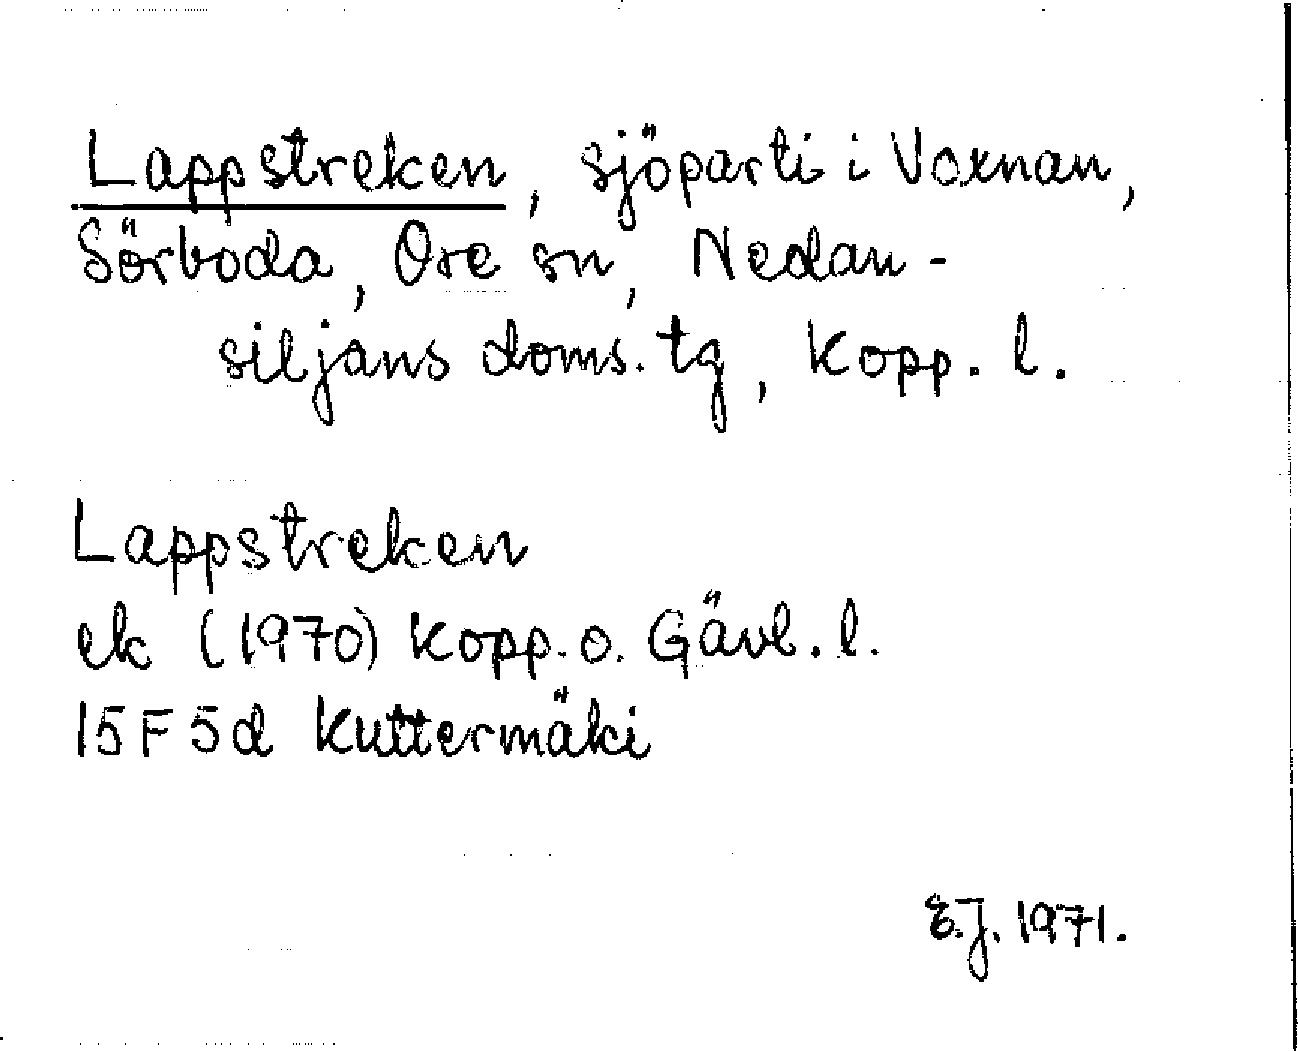 Lappstreken, sjöparti i Voxnan,
Sörboda, Ore sn, Nedan-
siljans doms. tg, Kopp. l.
Lappstreken
ek (1970) Kopp. o. Gävl. l.
15F5d Kuttermäki
E.J. 1971.